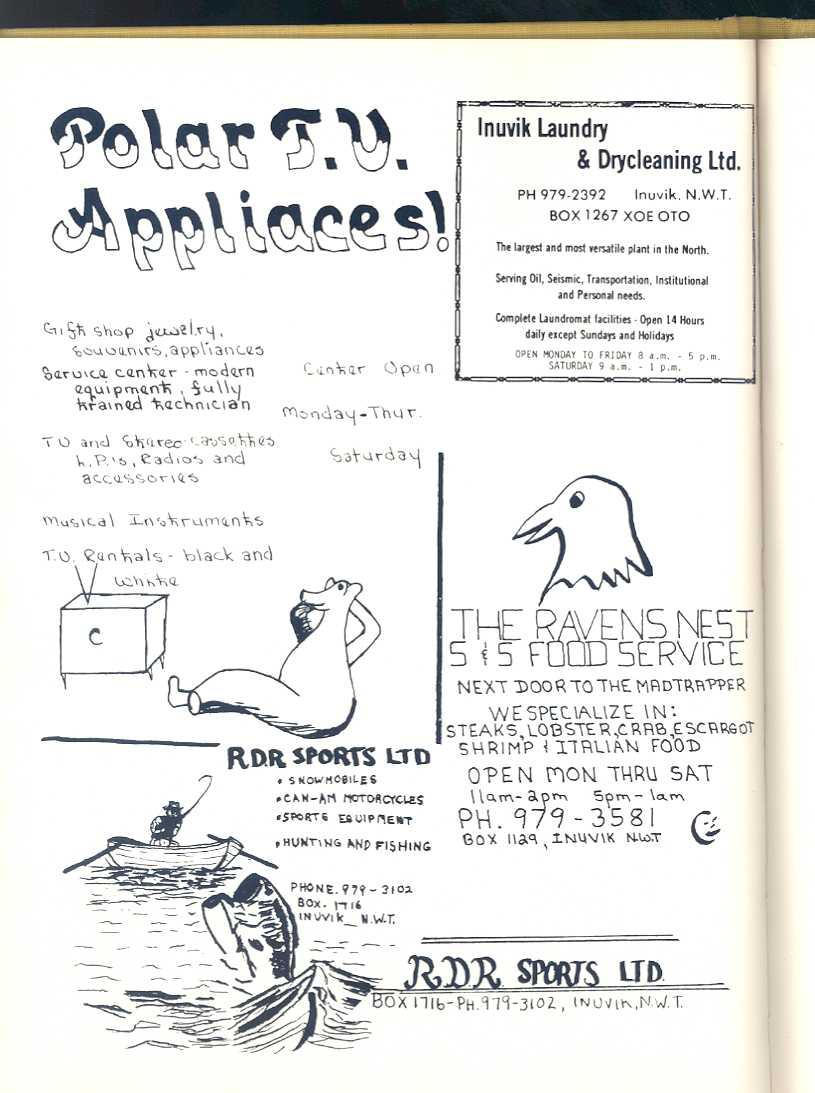 Polar T.V.
Appliaces!
Gift shop jewelry,
souvenirs, appliances
Service center - modern
equipment, fully
trained technician
TV and Stereo-cassettes
L.P.'s, Radios and
accessories
Musical Instruments
T.V. Rentals - black and
white
Center Open
Monday-Thur.
Saturday
C
Inuvik Laundry
& Drycleaning Ltd.
PH 979-2392 Inuvik. N.W.T.
BOX 1267 XOE OTO
The largest and most versatile plant in the North.
Serving Oil, Seismic, Transportation, Institutional
and Personal needs.
Complete Laundromat facilities - Open 14 Hours
daily except Sundays and Holidays
OPEN MONDAY TO FRIDAY 8 a.m. - 5 p.m.
SATURDAY 9 a.m. - 1 p.m.
THE RAVENS NEST
S & S FOOD SERVICE
NEXT DOOR TO THE MADTRAPPER
WE SPECIALIZE IN:
STEAKS, LOBSTER, CRAB, ESCARGOT
SHRIMP & ITALIAN FOOD
OPEN MON THRU SAT
11am-2pm 5pm-1am
PH. 979-3581
BOX 1129, INUVIK N.W.T
R.D.R SPORTS LTD
• SNOWMOBILES
• CAN-AM MOTORCYCLES
• SPORTS EQUIPMENT
• HUNTING AND FISHING
PHONE. 979-3102
BOX. 1716
INUVIK_ N.W.T.
R.D.R. SPORTS LTD.
BOX 1716-PH. 979-3102, INUVIK, N.W.T.